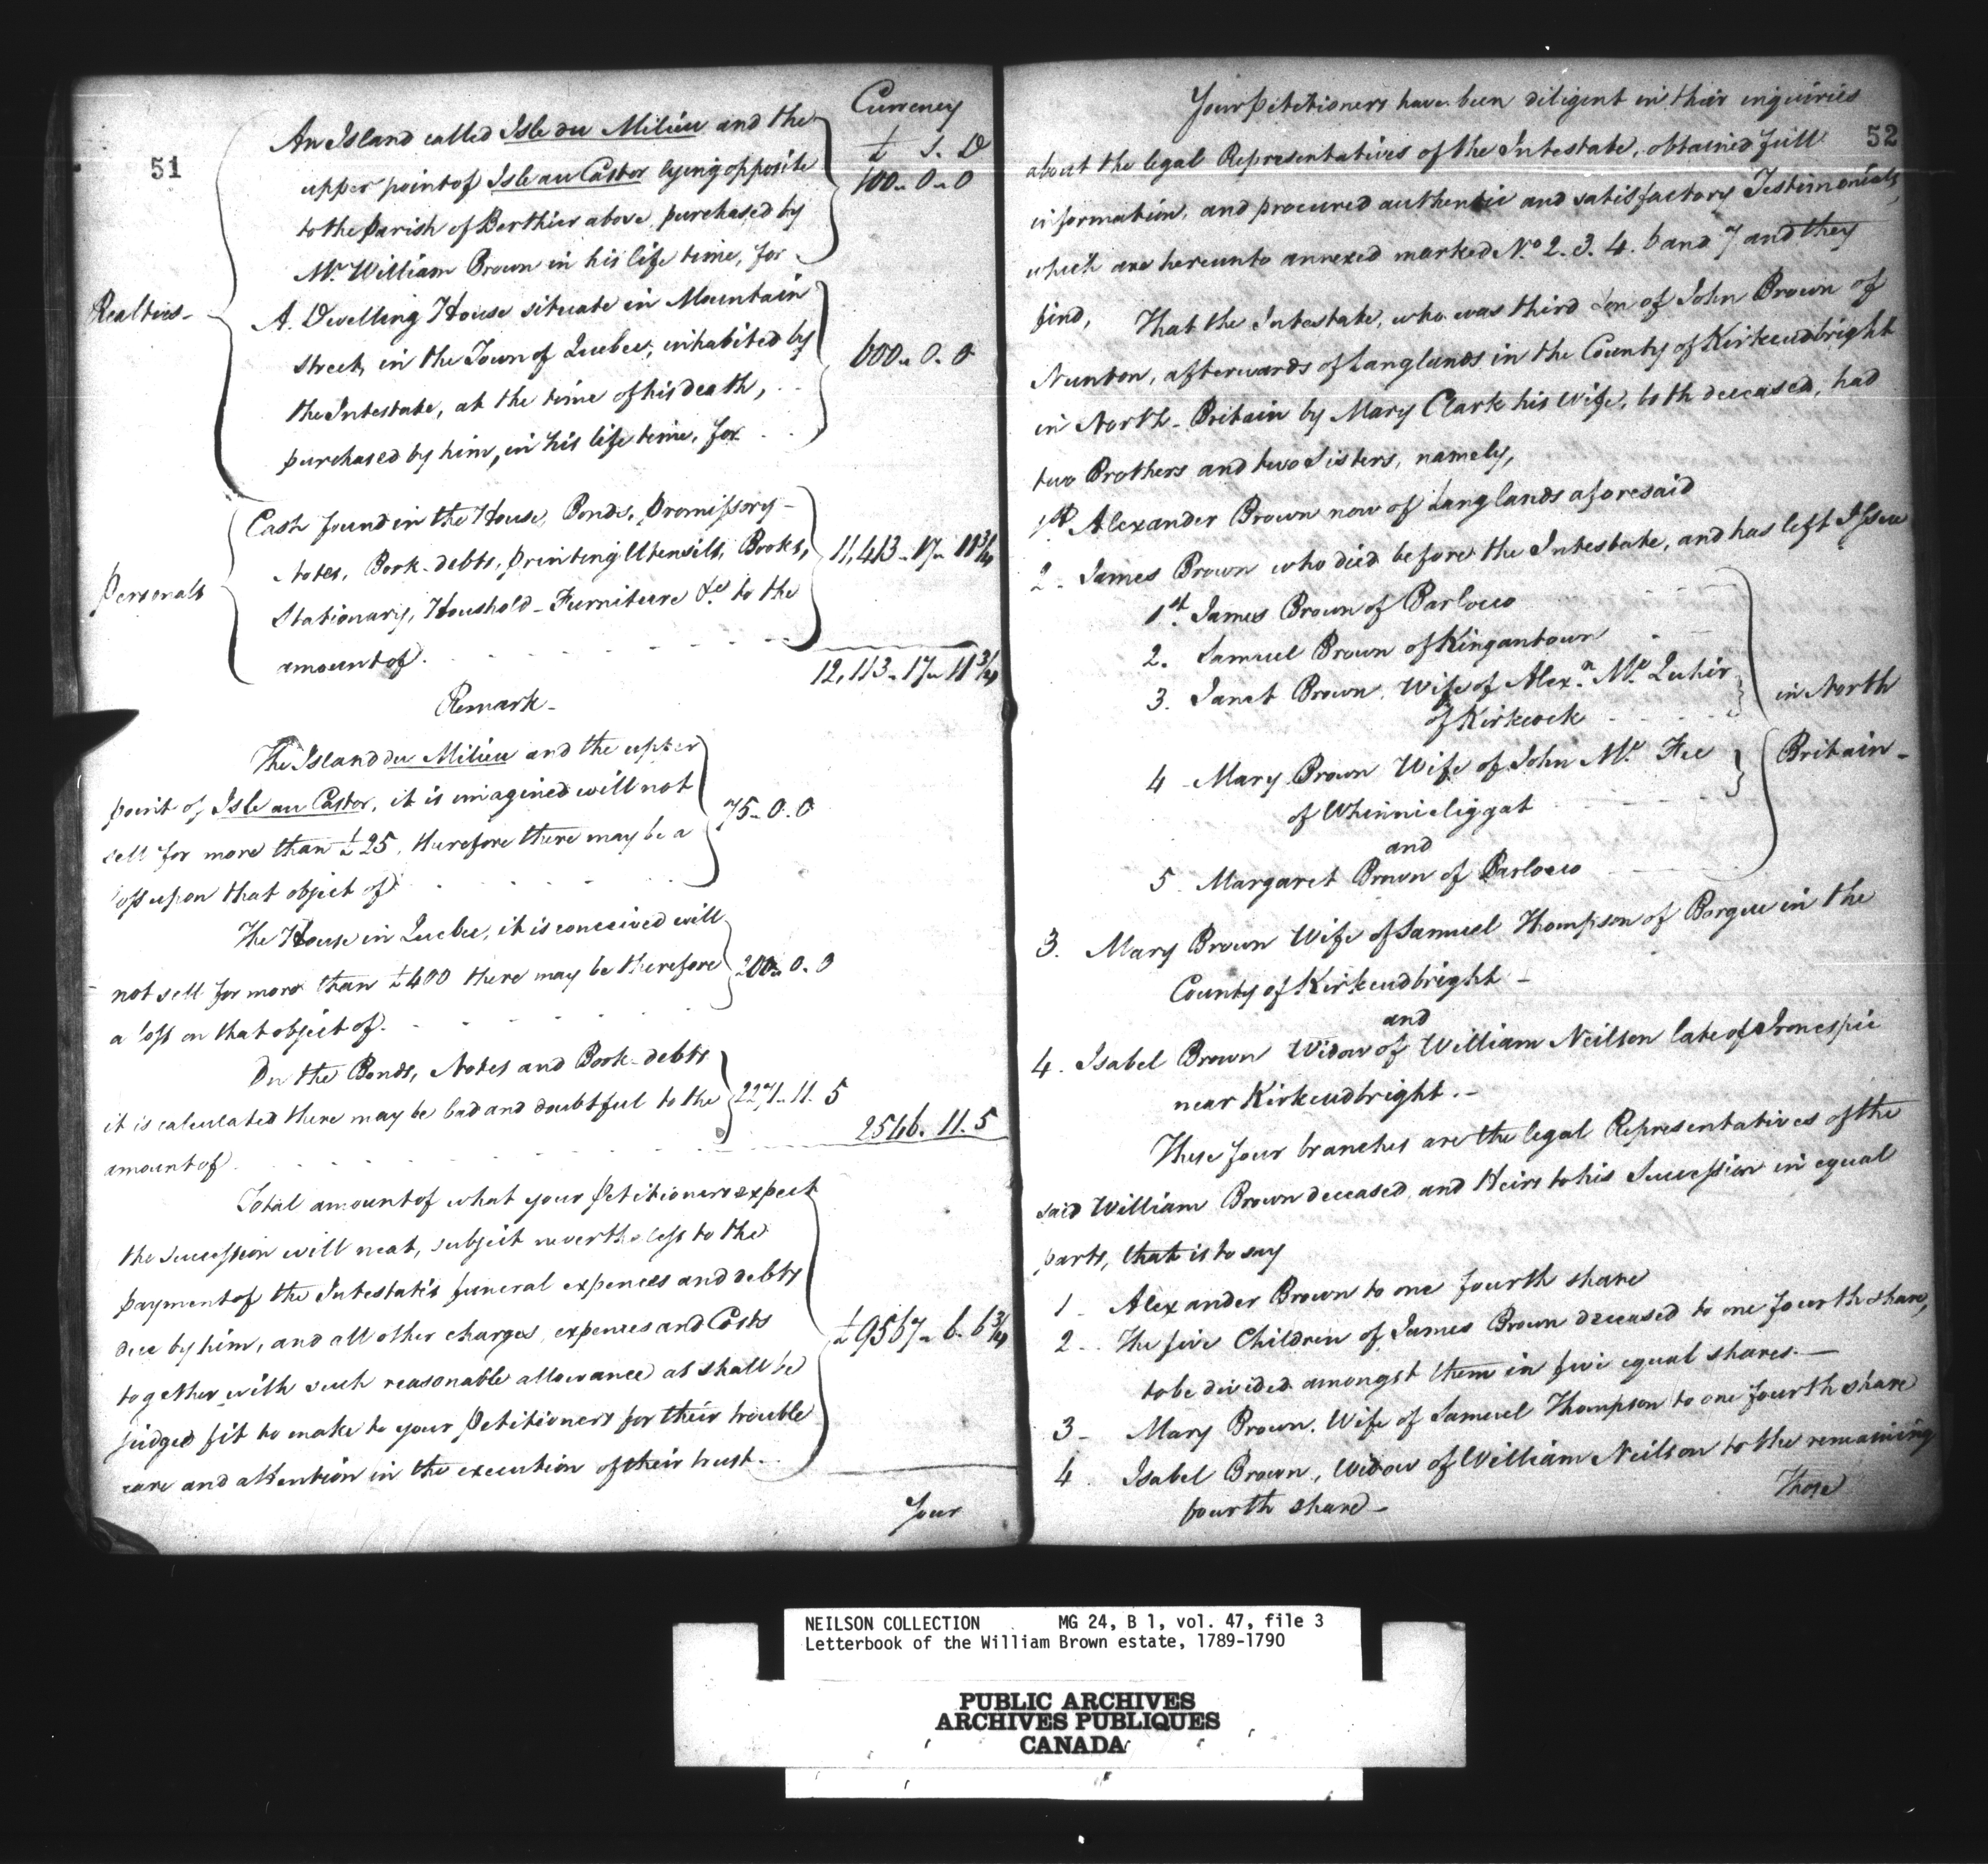 51
Currency
£ S. D
An Island called Isle du Milieu and the
upper point of Isle au Castor lying opposite
100 .. 0 .. 0
to the Parish of Berthier above, purchased by
Mr. William Brown in his life time, for
Realties -
A Dwelling House situate in Mountain
street, in the Town of Quebec, inhabited by
600 .. 0 . 0
the Intestate, at the time of his death,
purchased by him, in his life time, for
Cash found in the House, Bonds, Promissory -
Notes, Book-debts, printing Utensils, Books,
11,413 .. 17 .. 11 3/4
Personals
Stationary, Houshold - Furniture &c. to the
amount of.
12,113 .. 17 .. 11 3/4
Remark -
The Island du Milieu and the upper
point of Isle au Castor, it is imagined will not
75 .. 0 . 0
sell for more than £25, therefore there may be a
loss upon that object of
The House in Quebec, it is conceived will
not sell for more than £400 there may be therefore
200 .. 0 . 0
a loss on that object of.
On the Bonds, Notes and Book-debts
it is calculated there may be bad and doubtful to the
2271 .. 11 . 5
amount of
2546 . 11 . 5
Total amount of what your Petitioners expect
the succession will neat, subject nevertheless to the
payment of the Intestate's funeral expences and debts
due by him, and all other charges, expences and Costs
£9567 .. 6 . 6 3/4
together with such reasonable allowance as shall be
judged fit to make to your Petitioners for their trouble
care and attention in the execution of their trust.
Your
52
Your Petitioners have been diligent in their inquiries
about the legal Representatives of the Intestate, obtained full
information, and procured authentic and satisfactory Testimonials,
which are hereunto annexed marked No. 2. 3. 4. 6 and 7 and they
find,
That the Intestate, who was third Son of John Brown of
Nunton, afterwards of Langlands in the County of Kirkcudbright
in North - Britain by Mary Clark his Wife, both deceased, had
two Brothers and two Sisters, namely,
1st. Alexander Brown now of Langlands aforesaid
2 - James Brown who died before the Intestate, and has left Issue
1st. James Brown of Barlocco
2. Samuel Brown of Kingantown
3. Janet Brown, Wife of Alexr. Mc. Quhir
of Kirkeock
in North
Britain -
4 - Mary Brown Wife of John Mc. Kie
of Whinnieliggat
and
5 - Margaret Brown of Barlocco
3. Mary Brown Wife of Samuel Thompson of Borgue in the
County of Kirkcudbright -
and
4. Isabel Brown Widow of William Neilson late of
near Kirkcudbright. -
These four branches are the legal Representatives of the
said William Brown deceased and Heirs to his Succession in equal
parts, that is to say
1 - Alexander Brown to one fourth share
2 - The five Children of James Brown deceased to one fourth share,
to be divided amongst them in five equal shares. -
3 - Mary Brown, Wife of Samuel Thompson to one fourth share
4 Isabel Brown, Widow of William Neilson to the remaining
fourth share -
Those
NEILSON COLLECTION MG 24, B 1, vol. 47, file 3
Letterbook of the William Brown estate, 1789-1790
PUBLIC ARCHIVES
ARCHIVES PUBLIQUES
CANADA